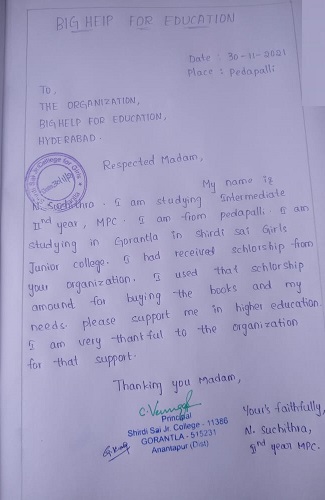 BIG HELP FOR EDUCATION
Date : 30-11-2021
Place : Pedapalli
To,
THE ORGANIZATION,
BIGHELP FOR EDUCATION,
HYDERABAD.
Respected Madam,
My name is
N. Suchithra. I am studying Intermediate
IInd year, MPC. I am from pedapalli. I am
studying in Gorantla in Shirdi sai Girls
Junior college. I had received schlorship from
your organization. I used that schlorship
amound for buying the books and my
needs. please support me in higher education.
I am very thankful to the organization
for that support.
Thanking you Madam,
Principal
Shirdi Sai Jr. College - 11386
GORANTLA - 515231
Anantapur (Dist)
Your's faithfully,
N. Suchithra,
IInd year MPC.